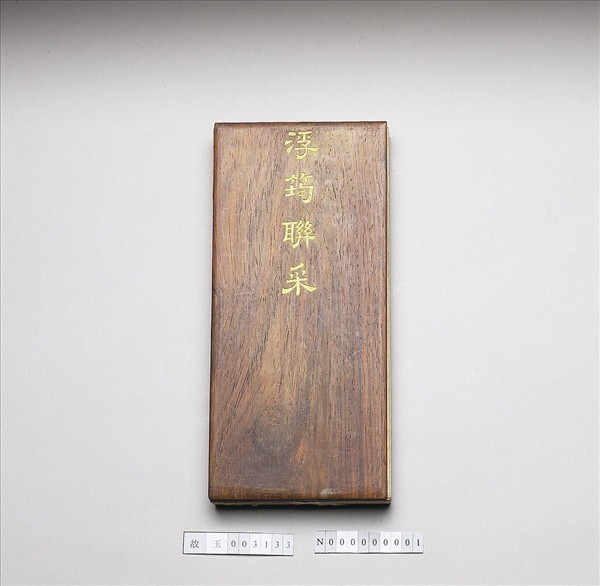 浮筠聯采
故玉003133
N000000001